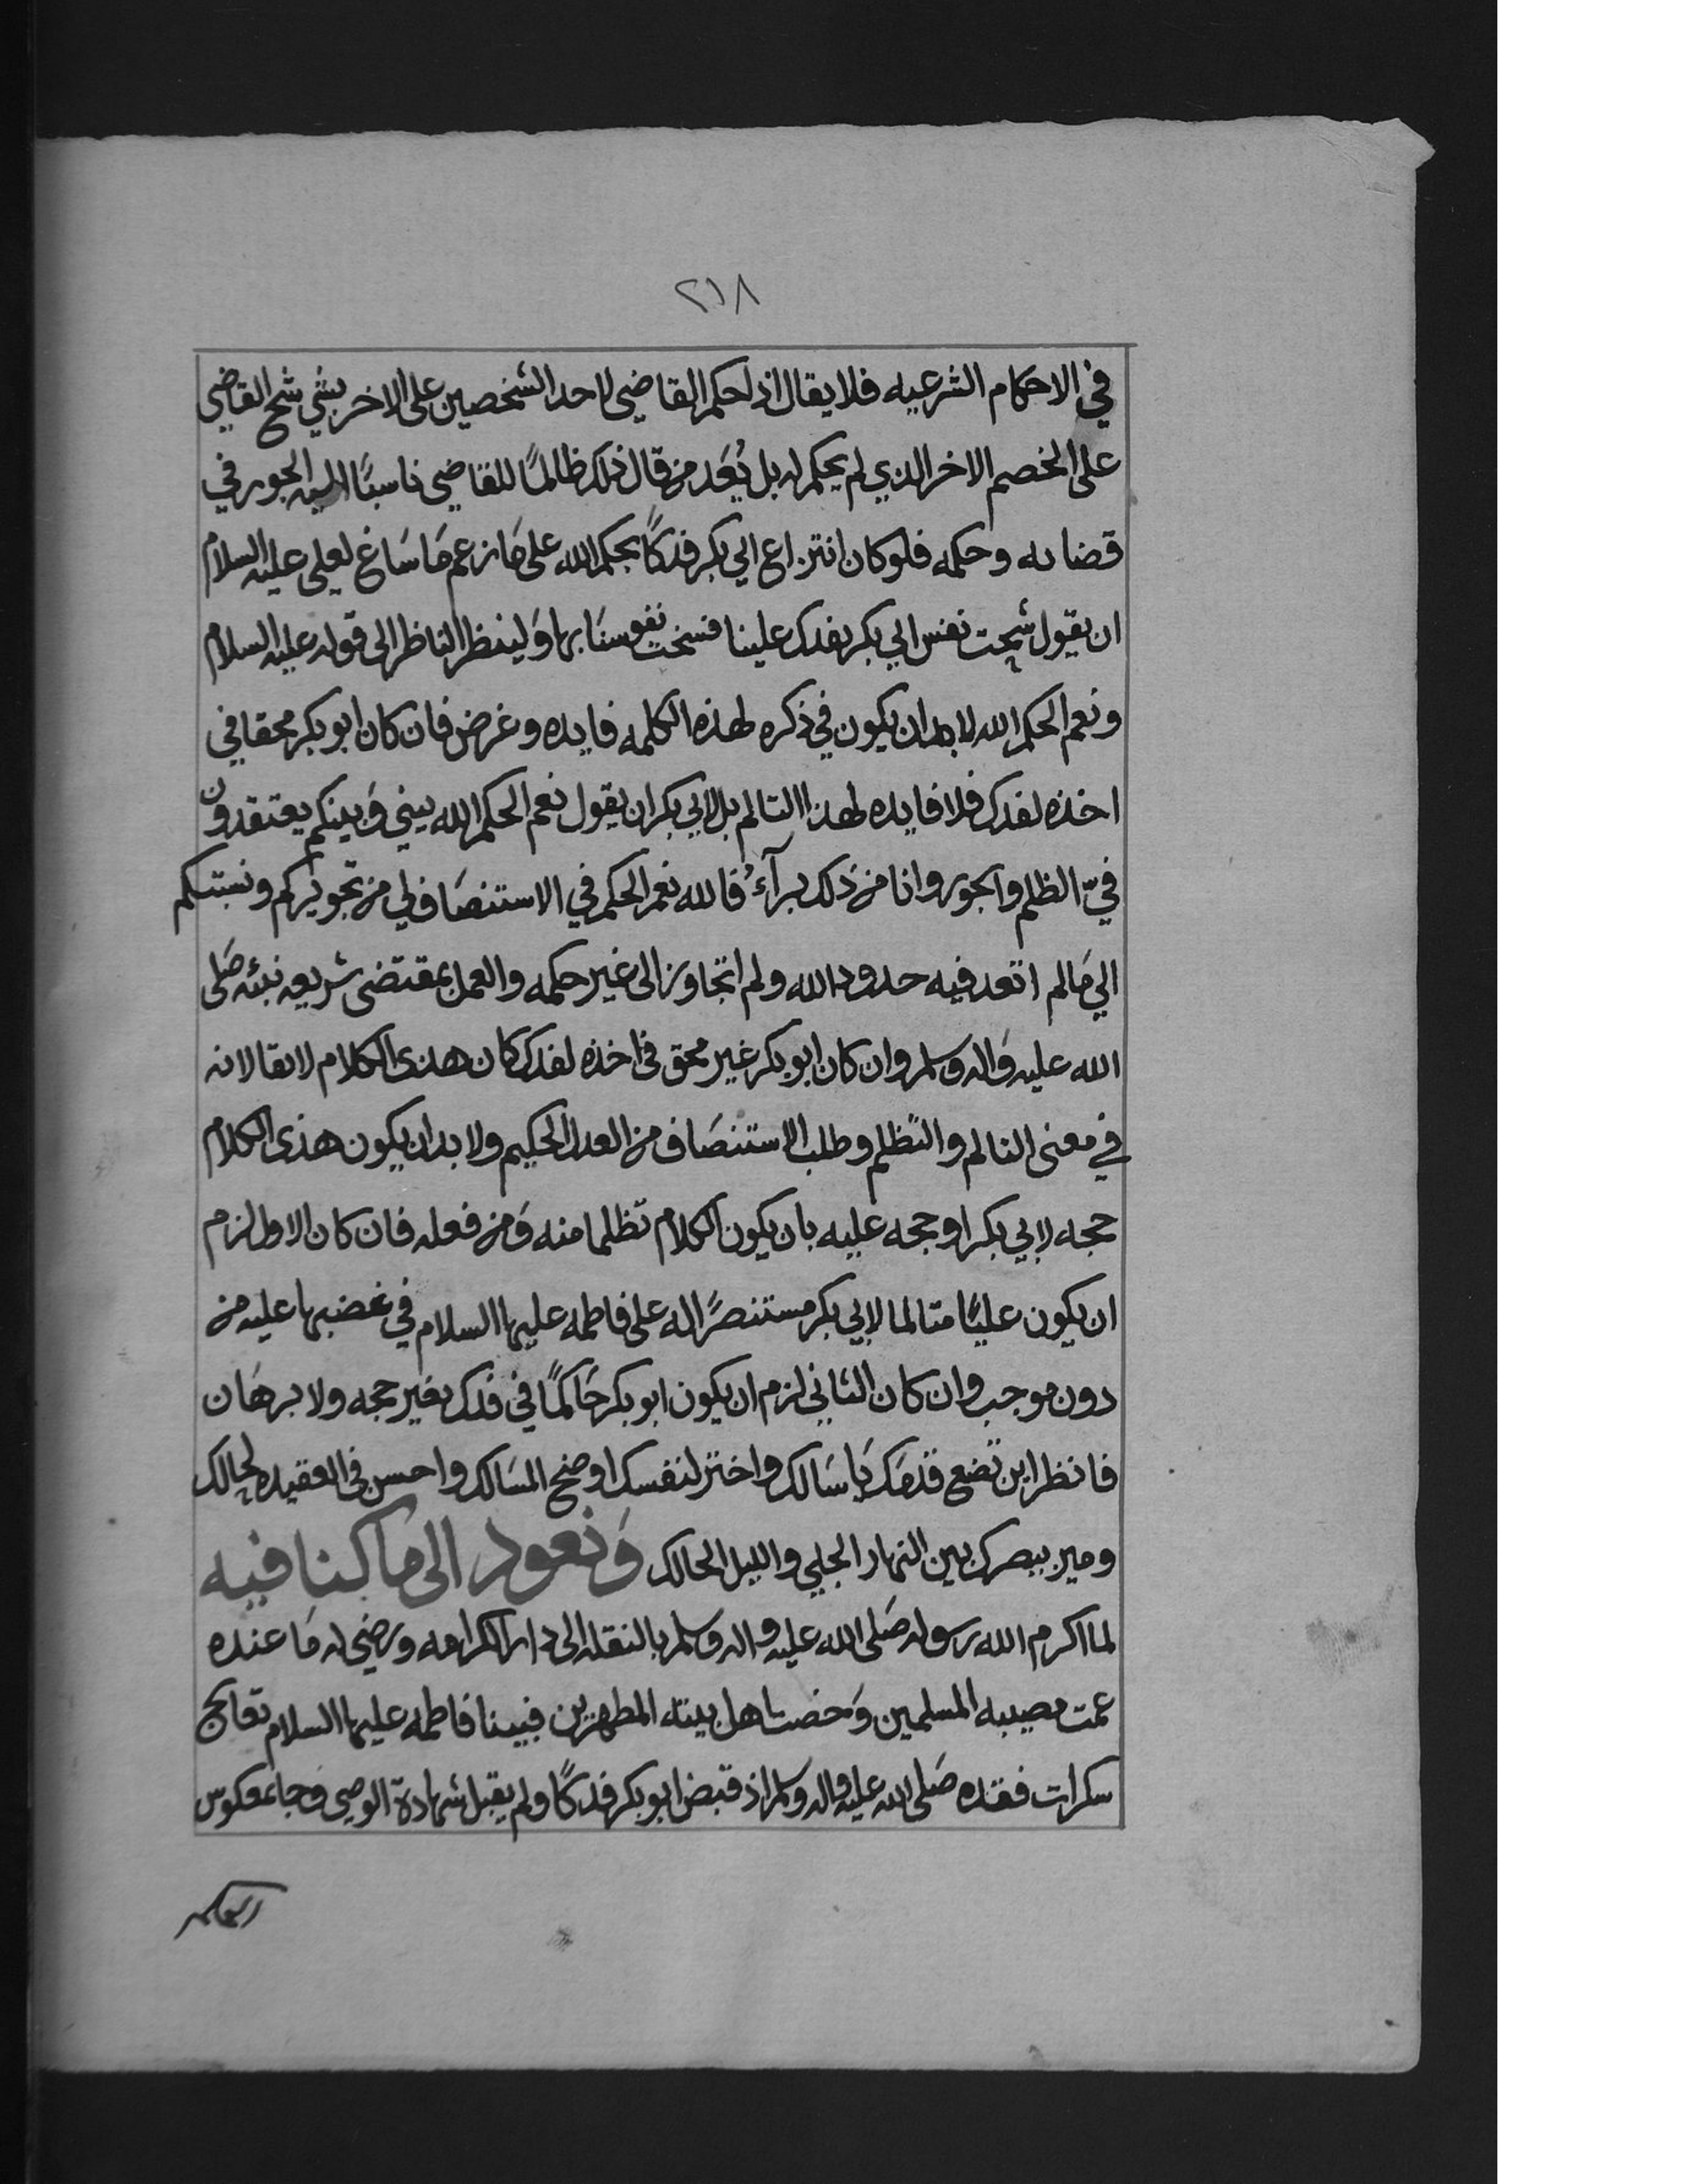 ٢١٨
في الاحكام الشرعيه فلا يقال اذا حكم القاضي لاحد الشخصين على الاخر بشي شح القاضي
على الخصم الاخر الذي لم يحكم له بل يُعَد من قال ذلك ظالمًا للقاضي ناسبًا اليه الجور في
قضايه وحكمه فلو كان انتزاع ابي بكر فدكًا بحكم الله على مَا زعم مَا سَاغ لعلي عليه السلام
ان يقول شحت نفس ابي بكر بفدك علينا فسخت نفوسنَا بها وَلينظر الناظر الى قوله عليه السلام
ونعم الحكم الله لا بد ان يكون في ذكره لهذه الكلمه فايده وغرض فان كان ابو بكر محقا في
اخذه لفدك فلا فايده لهذا التالم بل لابي بكر ان يقول نعم الحكم الله بيني وَبينكم يعتقدون
فيّ الظلم والجور وانا من ذلك برآءُ فالله نعم الحكم في الاستنصَاف لي من تجويركم ونسبتكم
الي مَا لم اتعد فيه حدود الله ولم اتجاوز الى غير حكمه والعمل بمقتضى شريعه نبئه صَلى
الله عليه وَاله وسلم وان كان ابو بكر غير محق في اخذه لفدك كان هذى الكلام لايقا لانه
في معنى التالم والتظلم وطلب الاستنصَاف من العدل الحكيم ولا بد ان يكون هذى الكلام
حجه لابي بكر او حجه عليه بان يكون الكلام تظلما منه وَمن فعله فان كان الاول لزم
ان يكون عليًا متالما لابي بكر مستنصرًا له على فاطمه عليها السلام في غضبها عليه من
دون موجب وان كان الثاني لزم ان يكون ابو بكر حَاكمًا في فدك بغير حجه ولا برهَان
فانظر اين تضع قدمَك يَا سَالك واختر لنفسك اوضح المسَالك واحسن في العقيده لحالك
وميز ببصرك بين النهار الجلي والليل الحالك وَنعود الى ما كنا فيه
لما اكرم الله رسوله صَلى الله عليه واله وسلم بالنقله الى دار الكرامه ورضي له مَا عنده
عمت مصيبه المسلمين وَخصت اهل بيته المطهرين فبينا فاطمه عليها السلام تعالج
سكرات فقده صَلى الله عليه واله وسلم اذ قبض ابو بكر فدكًا ولم يقبل شهادة الوصي وَجاء معكوس